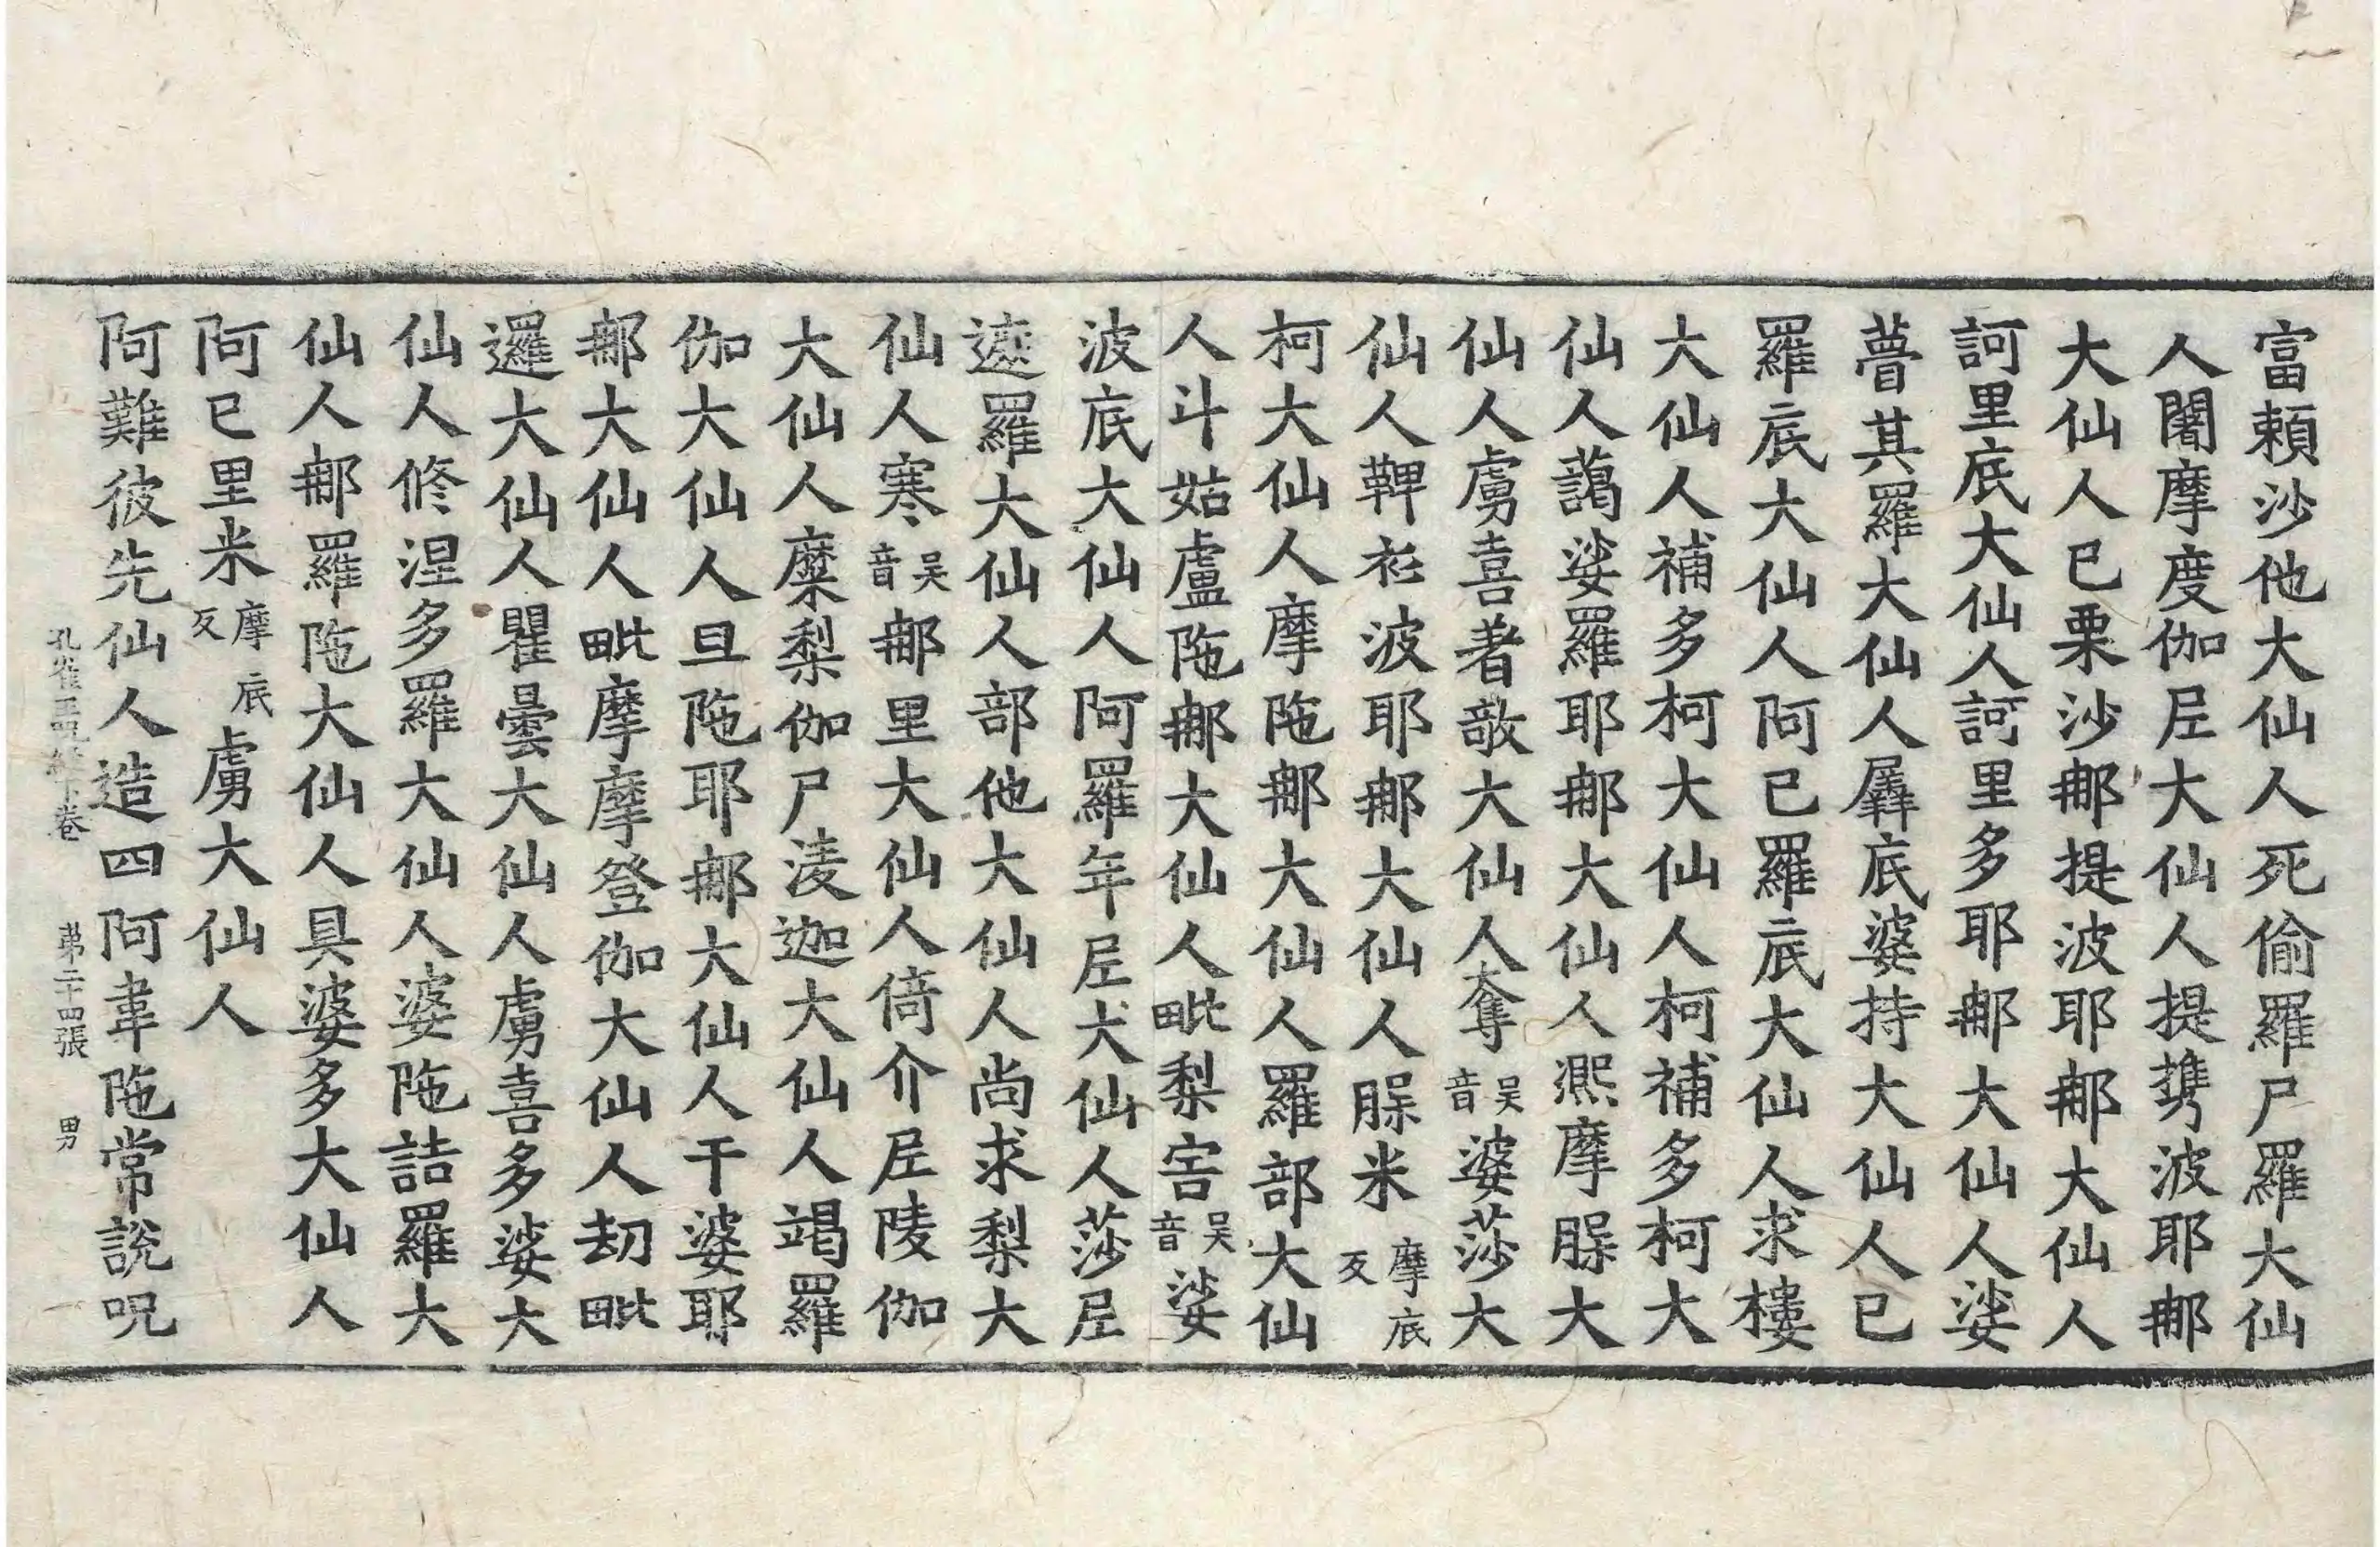 富賴沙他大仙人死偷羅尸羅大仙
人闍摩度伽𡰱大仙人提㩦波耶𨚗
大仙人巳栗沙𨚗提波耶𨚗大仙人
訶里底大仙人訶里多耶𨚗大仙人娑
瞢其羅大仙人羼底婆持大仙人巳
羅底大仙人阿巳羅底大仙人求樓
大仙人補多柯大仙人柯補多柯大
仙人藹娑羅耶𨚗大仙人凞摩腂大
仙人虜喜著敵大仙人奪吳音婆莎大
仙人鞞祛波耶𨚗大仙人腂米摩底反
柯大仙人摩陁𨚗大仙人羅部大仙
人斗姑盧陁𨚗大仙人毗梨害吳音娑
波底大仙人阿羅年𡰱大仙人莎𡰱
遮羅大仙人部他大仙人尚求梨大
仙人寒吳音𨚗里大仙人倚介𡰱陵伽
大仙人糜梨伽尸淩迦大仙人竭羅
伽大仙人旦陁耶𨚗大仙人干婆耶
𨚗大仙人毗摩摩登伽大仙人刧毗
邏大仙人瞿曇大仙人虜喜多娑大
仙人修涅多羅大仙人婆陁詰羅大
仙人𨚗羅陁大仙人具婆多大仙人
阿巳里米摩底反虜大仙人
阿難彼先仙人造四阿韋陁常說呪
孔雀王呪經下卷 苐二十四張 男